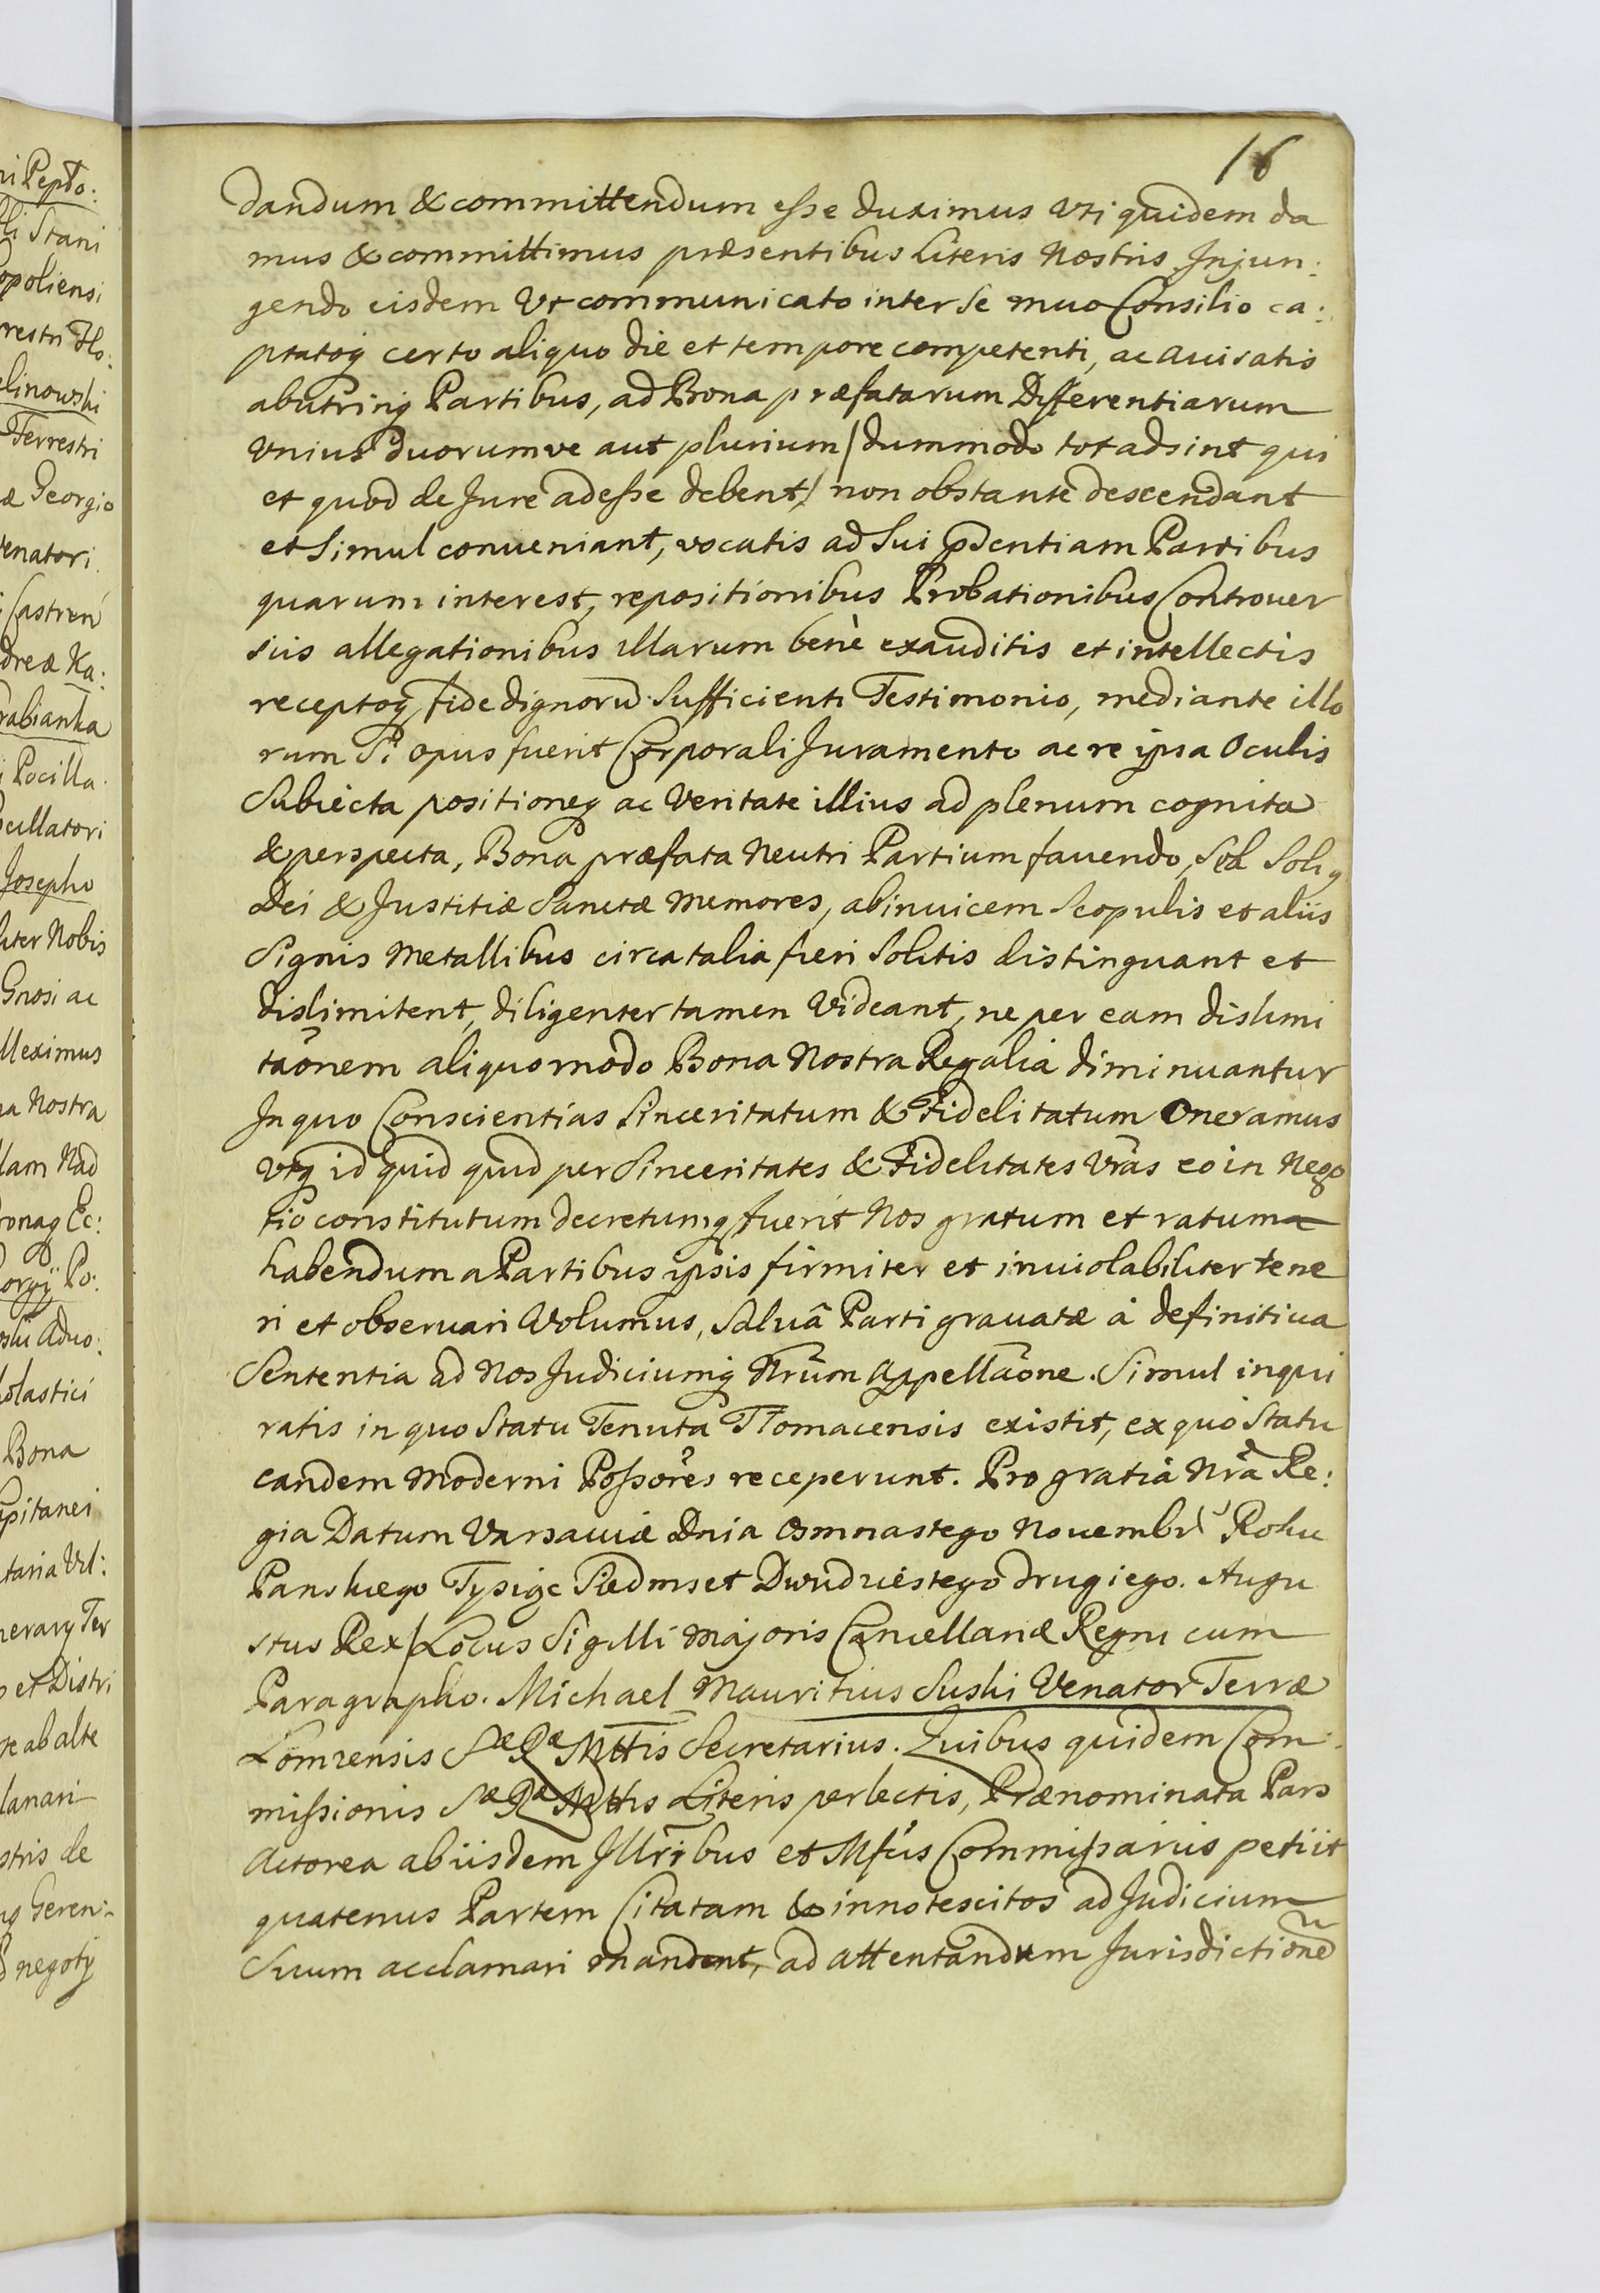 16
dandum & committendum esse duximus Uti quidem da
mus & committimus præsentibus Literis Nostris. Injun:
gendo eisdem Ut communicato inter Se muo Consilio ca:
ptatoq certo aliquo die et tempore competenti, ac avisatis
ab utrinq Partibus, ad Bona præfatarum Differentiarum
Unius Duorumve aut plurium / dummodo tot adsint qui
et quod de Jure adesse debent / non obstante descendant
et Simul conveniant, vocatis ad Sui pdentiam Partibus
quarum interest, repositionibus Probationibus Controuer
siis allegationibus illarum benè exauditis et intellectis
receptoq fide dignorū Sufficienti Testimonio, mediante illo
rum Si opus fuerit Corporali Juramento ac re ipsa Oculis
Subiecta positioneq ac Veritate illius ad plenum cognita
& perspecta, Bona præfata Neutri Partium fauendo, Sed Soliq
Dei & Justitiæ Sanctæ Memores, ab inuicem Scopulis et aliis
Signis Metallibus circa talia fieri Solitis distinguant et
dislimitent, diligenter tamen Videant, ne per eam dislimi
taõnem aliquo modo Bona Nostra Regalia diminuantur
In quo Conscientias Sinceritatum & Fidelitatum Oneramus
Utq id quid quid per Sinceritates & Fidelitates Vrãs eo in Nego
tio constitutum decretumq fuerit Nos gratum et ratum
habendum a Partibus ipsis firmiter et inuiolabiliter tene
ri et obseruari Volumus, Salvâ Parti grauatæ à definitiua
Sententia ad Nos Judiciumq Nrūm Appellaõne. Simul inqui
ratis in quo Statu Tenuta Tłomacensis existit, ex quo Statu
eandem Moderni Possõres receperunt. Pro gratiâ Nrã Re:
gia Datum Varsaviæ Dnia Osmnastego Novembr Roku
Panskiego Tysiąc Siedmset Dwudziestego drugiego. Augu
stus Rex / Locus Sigilli Majoris Cancellariæ Regni cum
Paragrapho. Michael Mauritius Suski Venator Terræ
Łomzensis Sæ Ræ Mttis Secretarius. Quibus quidem Com:
missionis Sæ Ræ Mttis Literis perlectis, Prænominata Pars
Actorea ab iisdem Illrībus et Mfcis Commissariis petiit
quatenus Partem Citatam & innotescitos ad Judicium
Suum acclamari mandent, ad attentandum Jurisdictionē